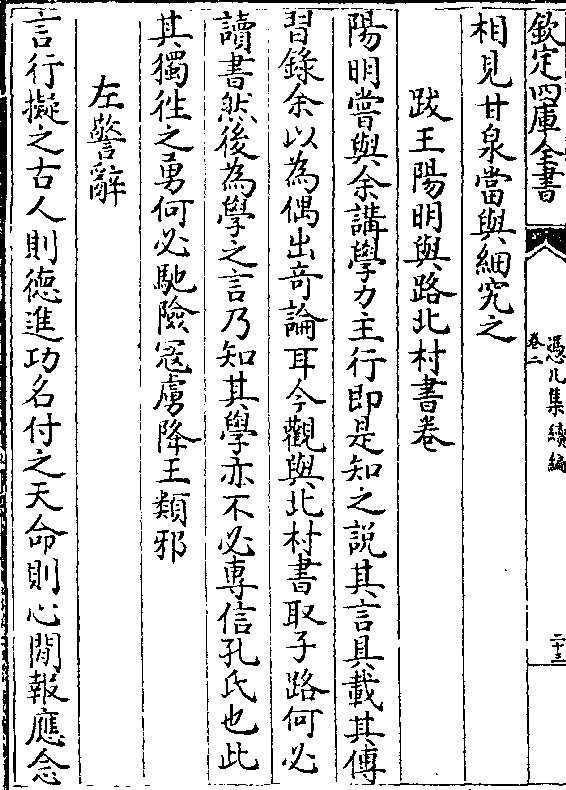 欽定四庫全書
憑几集續編
卷二
二十三
相見甘泉當與細究之
跋王陽明與路北村書卷
陽明嘗與余講學力主行即是知之說其言具載其傳
習錄余以為偶出竒論耳今觀與北村書取子路何必
讀書然後為學之言乃知其學亦不必專信孔氏也此
其獨徃之勇何必馳險冦虜降王類邪
左警辭
言行擬之古人則德進功名付之天命則心閒報應念